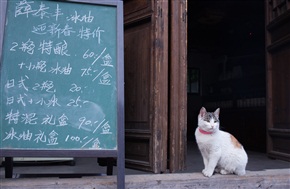 薛泰丰 冰油
迎新春 特价
2瓶 特酿 60/盒
+小瓶 冰油 75/盒
日式2瓶 20.
日式+小冰 25.
特混礼盒 90/盒
冰油礼盒 100/